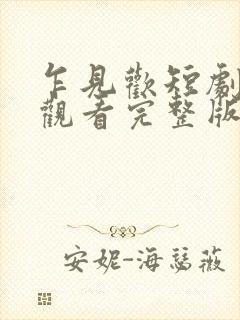 乍見歡短劇
觀看完整版
安妮-海瑟薇